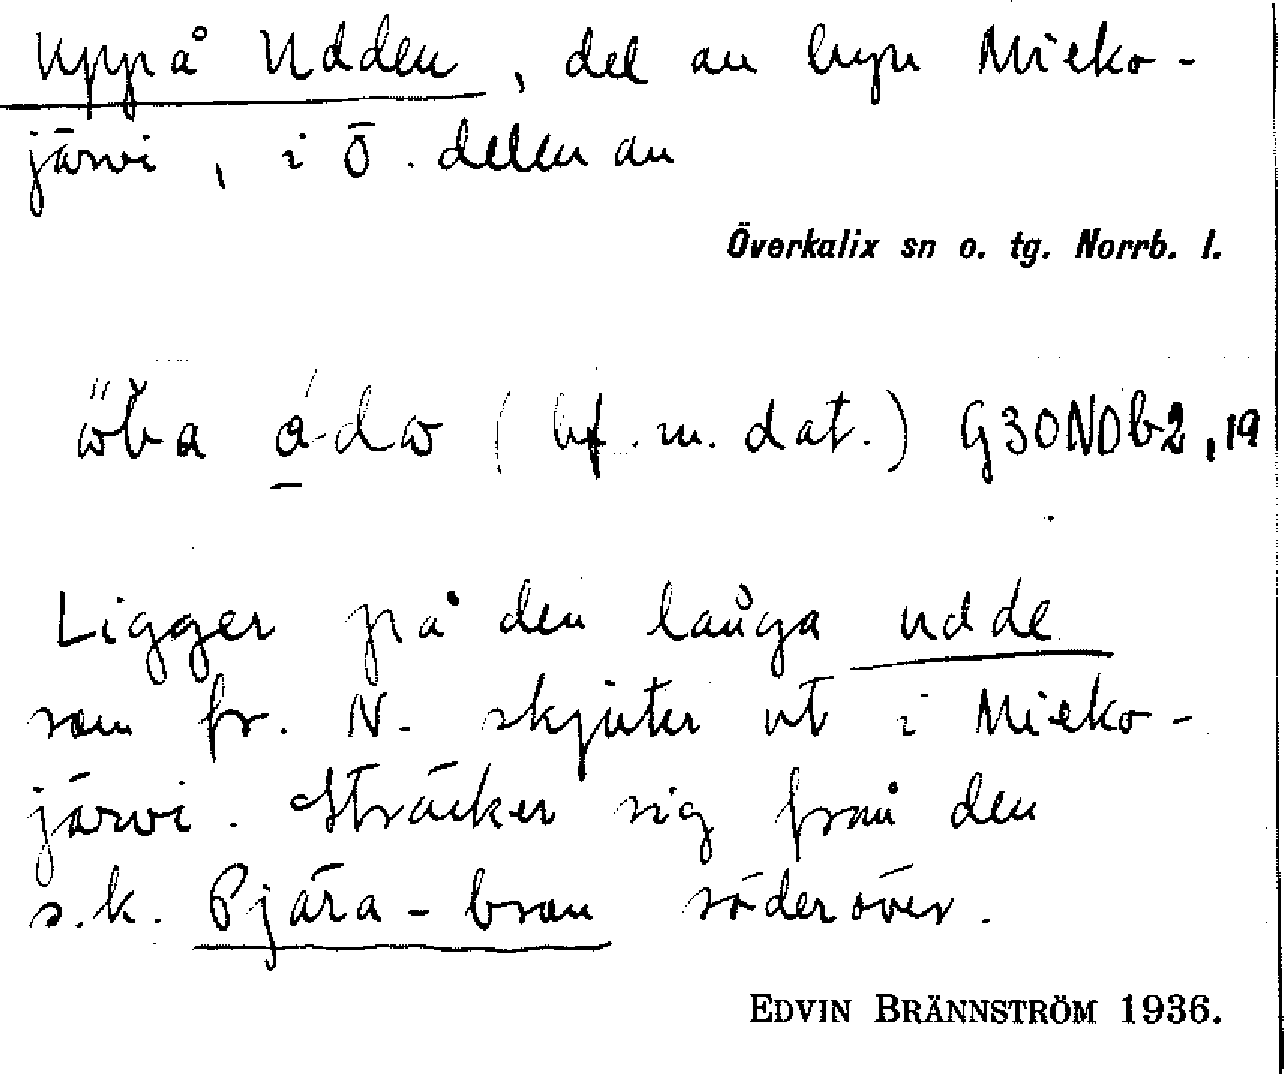 Uppå Udden, del av byn Mieko-
järvi, i Ö. delen av
Överkalix sn o. tg. Norrb. l.
(bf. m. dat.) G30NOb2,19
Ligger på den långa udde
som fr. N. skjuter ut i Mieko-
järvi. Sträcker sig från den
s.k. Pjära-bran söderöver.
EDVIN BRÄNNSTRÖM 1936.